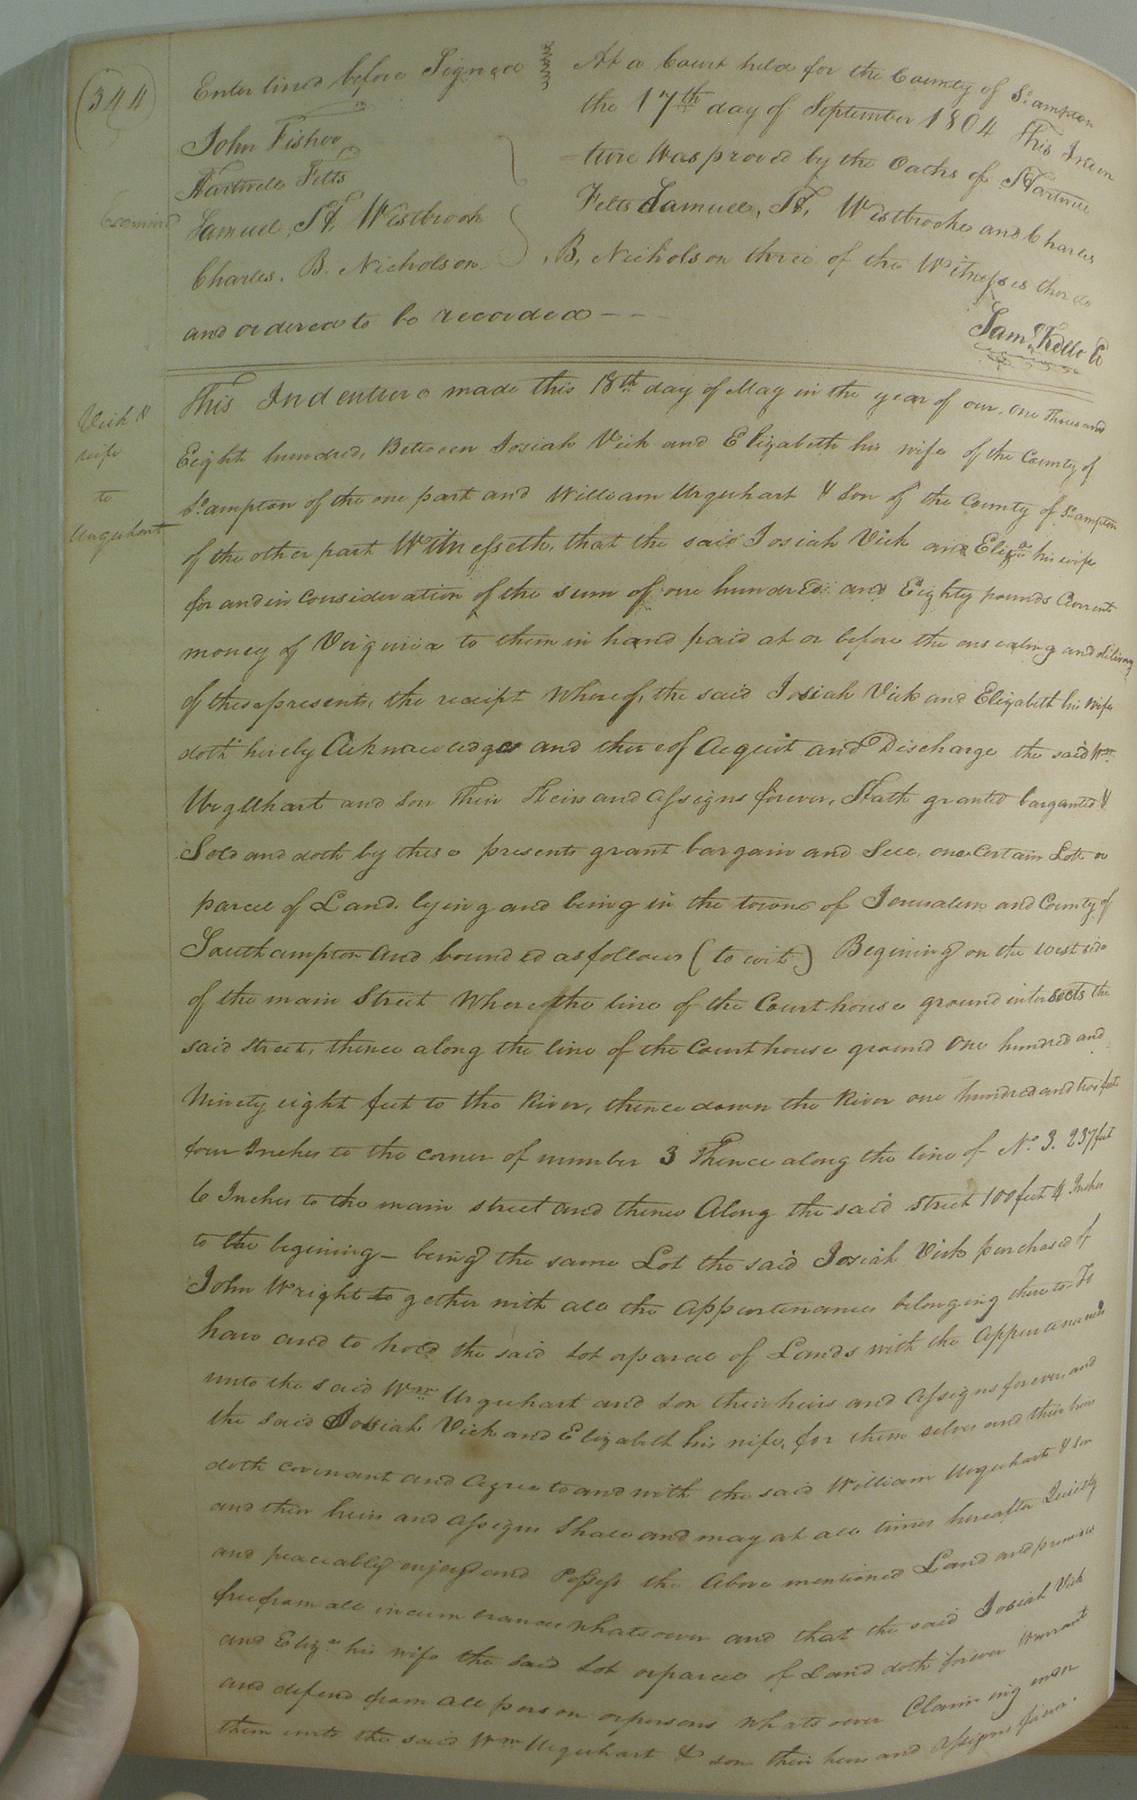 344
Enterlined before Signed
John Fisher
Hartwell Felts
Samuel, H, Westbrook
Charles, B. Nicholson
Examined
At a Court held for the County of S.ampton
the 17th day of September 1804 This Inden
ture Was proved by the Oaths of Hartwell
Felts Samuel, H, Westbrooke and Charles
B, Nicholson three of the Witnesses thereto
and ordered to be recorded - - -
Sam.l Kello C
Vick &
wife
to
Urquhart
This Indenture made this 18th day of May in the year of our, One thousand
Eight hundred, Between Josiah Vick and Elizabeth his wife of the County of
S.ampton of the one part and William Urquhart & Son of the County of S.ampton
of the other part Witnesseth, that the said Josiah Vick and Eliz.a his wife
for and in consideration of the sum of one hundred and Eighty pounds Current
money of Virginia to them in hand paid at or before the ensealing and delivery
of these presents, the receipt Whereof, the said Josiah Vick and Elizabeth his wife
doth hereby Acknowledge and thereof Acquit and Discharge the said Wm
Urquhart and Son Their Heirs and assigns forever, Hath granted barganted &
Sold and doth by these presents grant bargain and Sell, one Certain Lott or
parcel of Land lying and being in the towne of Jerusalem and County of
Southampton and bounded as follows (to wit) Begining on the west side
of the main Street Where the line of the Courthouse ground intersects the
said street, thence along the line of the Courthouse ground One hundred and
Ninety eight feet to the River, thence down the River one hundred and two feet
four Inches to the corner of number 3 Thence along the line of No. 3. 237 feet
6 Inches to the main street and thence Along the said Street 100 feet 4 Inches
to the begining - being the same Lot the said Josiah Vick purchased of
John Wright together with all the Appurtenances belonging thereto To
have and to hold the said Lot or parcel of Lands with the Appurtenances
unto the said Wm Urquhart and Son their heirs and Assigns forever, and
the said Josiah Vick and Elizabeth his wife, for them selves and their heirs
doth covenant and Agree to and with the said William Urquhart & Son
and their heirs and Assigns Shall and may at all times hereafter Quietly
and peaceably enjoy and Possess the Above mentioned Land and premises
free from all incumbrances whatsoever and that the said Josiah Vick
and Eliz.a his wife the said Lot or parcel of Land doth forever Warrant
and defend from all person or persons whatsoever Claiming
them unto the said Wm Urquhart & son their heirs and Assigns forever.